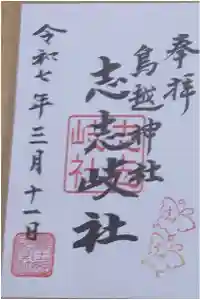 奉拝
鳥越神社
志志岐社
令和七年三月十一日